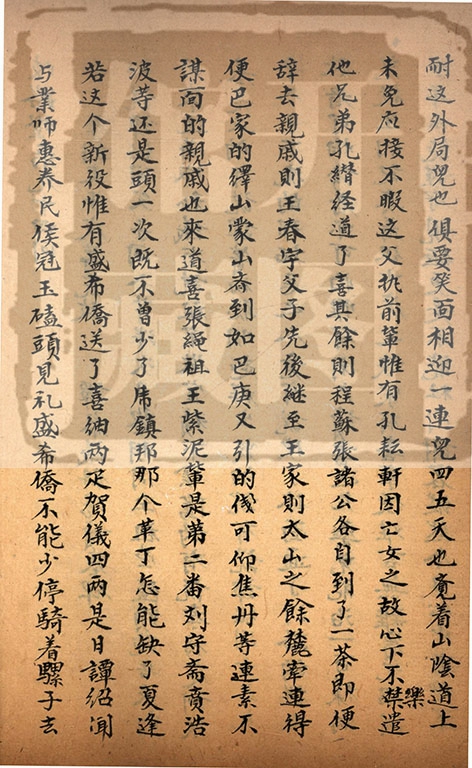 耐这外局兒也俱要癸面相迎一連兒四五天也竟着山陰道上
未免应接不暇这父执前輩惟有孔耘軒因亡女之故心下不禁樂遣
他兄弟孔纘经道了喜其餘則程蘇張諸公各自到了一茶即便
辞去親戚則王春宇父子先後継至王家則太山之餘麓牽連得
便巴家的繹山蒙山斉到如巴庚又引的伐可仰焦丹等連素不
謀面的親戚也來道喜張繩祖王紫泥輩是第二番刘守斋賁浩
波等还是頭一次既不曾少了席鎮邦那个革丁怎能缺了夏逢
若这个新役惟有盛希僑送了喜紬两疋賀儀四两是日譚紹闻
与業师惠养民侯冠玉磕頭見礼盛希僑不能少停騎着騾子去